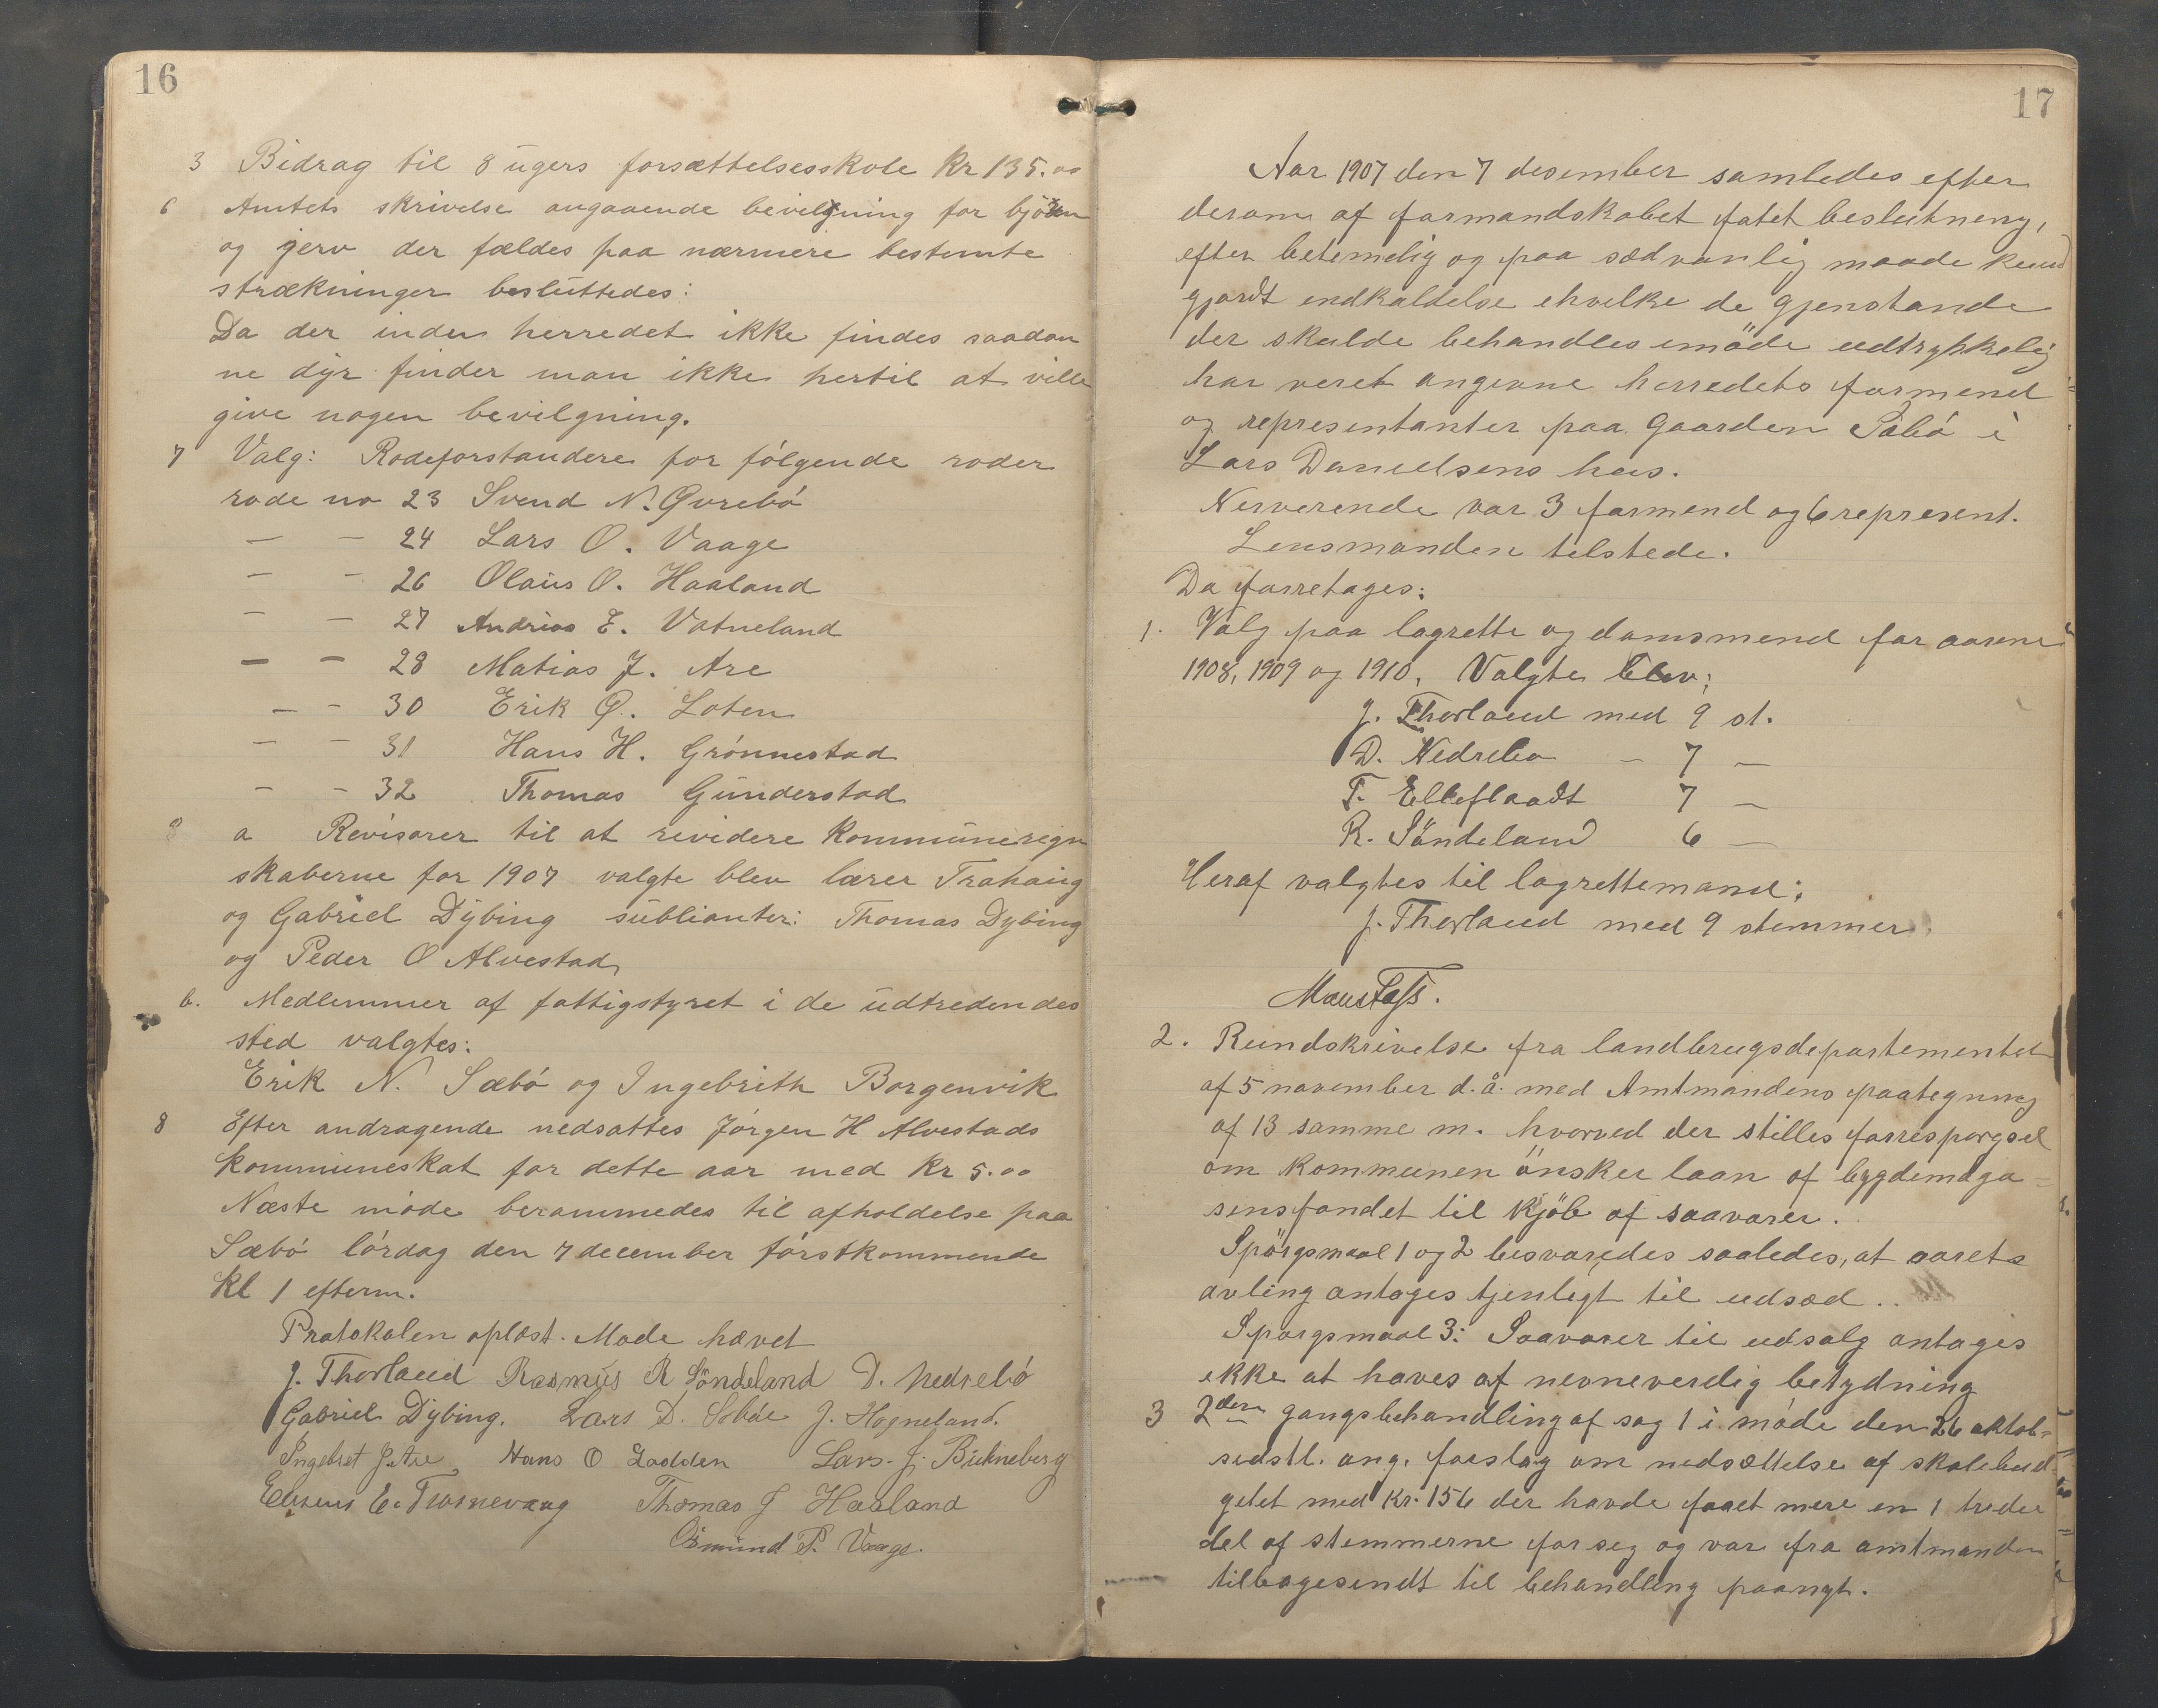 16
3 Bidrag til 8 ugers forsættelsesskole Kr 135.00
6 Amtets skrivelse angaaende bevilgning for bjørn
og jerv der fældes paa nærmere bestemte
strækninger besluttedes:
Da der inden herredet ikke findes saadan
ne dyr finder man ikke hertil at ville
give nogen bevilgning.
7 Valg: Rodeforstandere for følgende roder
rode no 23 Svend N. Øvrebø
— — 24 Lars O. Vaage
— — 26 Olaus O. Haaland
— — 27 Andreas E. Vatneland
— — 28 Matias J. Are
— — 30 Erik Q. Loten
— — 31 Hans H. Grønnestad
— — 32 Thomas Gunderstad
8 a Revisorer til at revidere Kommuneregn
skaberne for 1907 valgte blev lærer Trahaug
og Gabriel Dybing sublianter: Thomas Dybing
og Peder O Alvestad
b. Medlemmer af fattigstyret i de udtredendes
sted valgtes:
Erik N. Sæbø og Ingebrith Borgenvik
8 Efter andragende nedsattes Jørgen H Alvestads
kommuneskat for dette aar med Kr 5.00
Næste møde berammedes til afholdelse paa
Sæbø lørdag den 7 december førstkommende
Kl 1 efterm.
Protokolen oplæst. Møde hævet
J. Thorland Rasmus R Söndeland D. Nedrebø
Gabriel Dybing. Lars D. Sebøe J. Hogneland.
Ingebret J. Are Hans O Lodden Lars. J. Bukneberg
E. Tvornevaag Thomas J Haaland
Osmund P. Vaage.
17
Aar 1907 den 7 desember samledes efter
derom af formandskabet fatet beslutneng,
efter betemelig og paa sædvanlig maade kund
gjordt endkaldelse ehvilke de gjenstande
der skulde behandles emöde udtrykkelig
har veret angevne herredets formend
og representanter paa Gaarden Säbö i
Lars Danielsens hus.
Nerverende var 3 formend og 6 represent.
Lensmanden telstede.
Da forretages:
1. Valg paa lagrette og domsmend for aarene
1908, 1909 og 1910. Valgte blev;
J. Thorland med 9 st.
D. Nedrebø — 7 —
T. Elleflaadt 7 —
R. Söndeland 6 —
Heraf valgtes til lagrettemand;
J. Thorland med 9 stemmer.
2. Rundskrivelse fra landbrugsdepartementet
af 5 november d. å. med Amtmandens paategning
af 13 samme m. hvorved der stilles forrespørgsel
om kommunen önsker laan af bygdemaga=
sensfondet til kjöb af saavarer.
Spörgsmaal 1 og 2 besvaredes saaledes, at aarets
avling antages tjenligt til udsæd..
Spørgsmaal 3: Saavarer til udsalg antages
ekke at haves af nevneverdig betydning
3 2den gangsbehandling af sag 1 i møde den 26 oktob=
sidstl. ang. forslag om nedsættelse af skolebud
getet med Kr. 156 der havde faaet mere en 1 tredee
del af stemmerne for seg og var fra amtmanden
tilbagesendt til behandling paanyt.